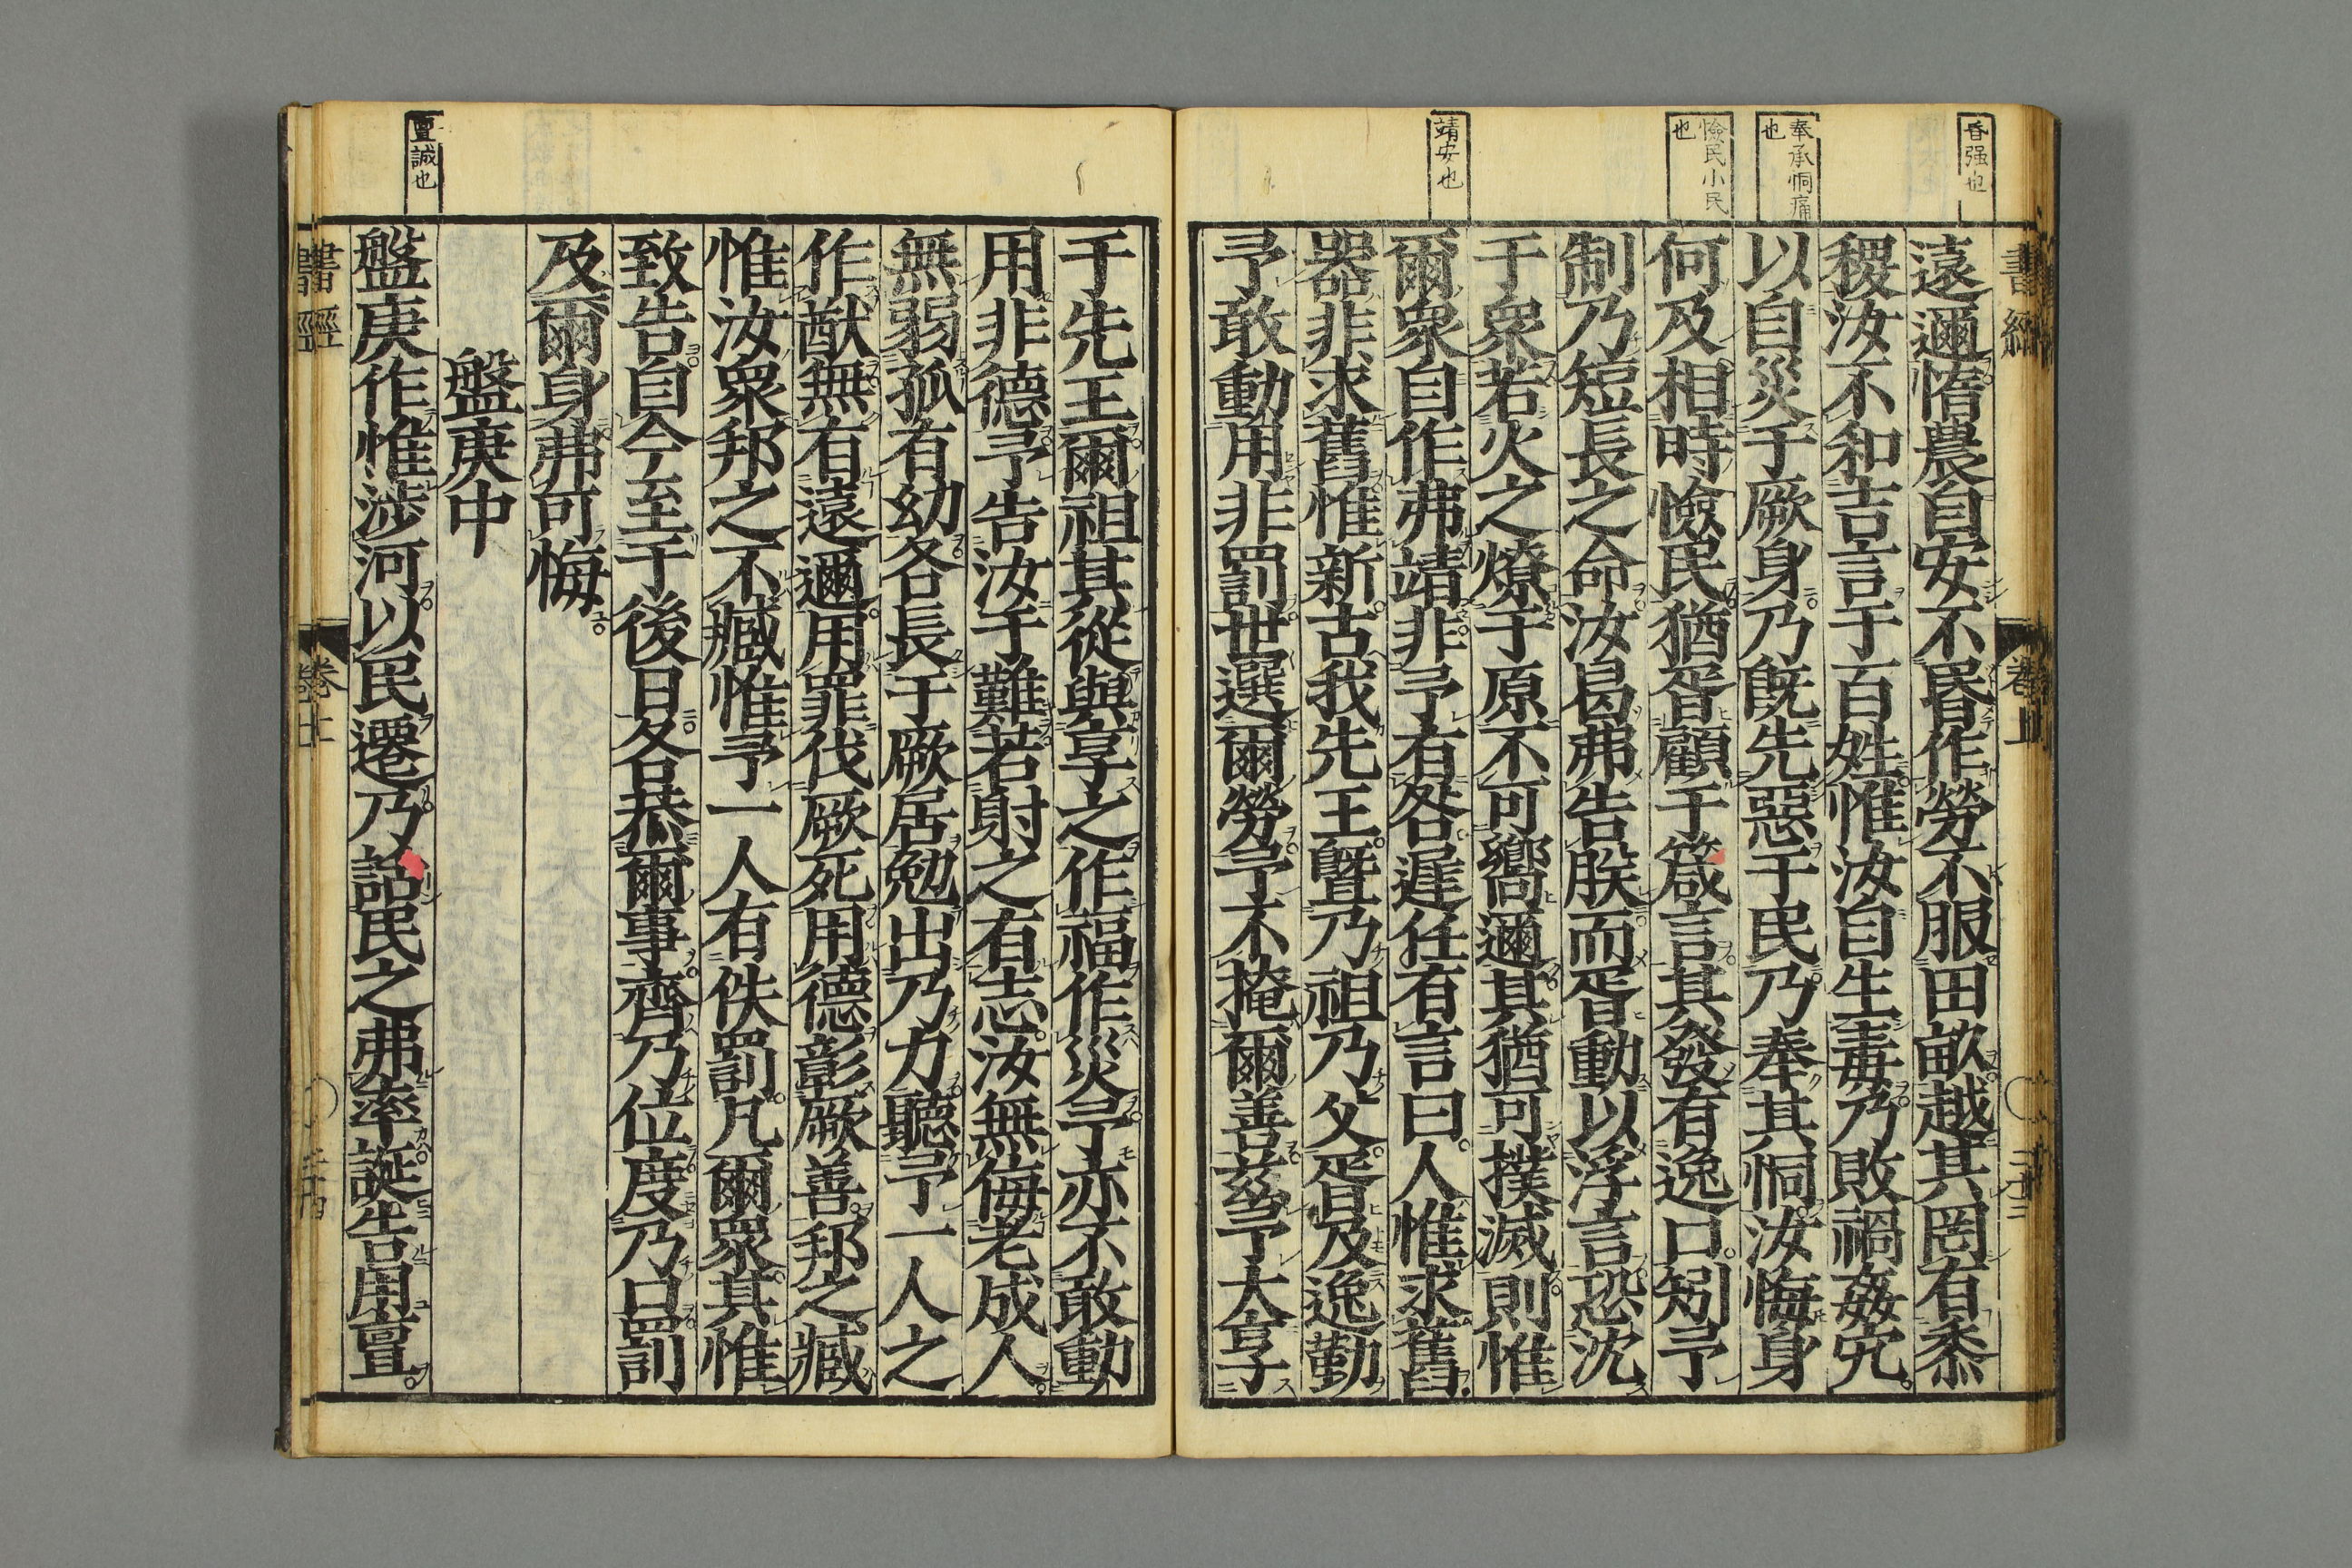 昏强也
奉承恫痛
也
憸民小民
也
靖安也
書經
卷上
遠邇惰農自安不昬作勞不服田畝越其罔有黍
稷汝不和吉言于百姓惟汝自生毒乃敗禍姦宄
以自災于厥身乃旣先惡于民乃奉其恫汝悔身
何及相時憸民猶胥顧于箴言其發有逸口矧予
制乃短長之命汝曷弗告朕而胥動以浮言恐沈
于衆若火之燎于原不可嚮邇其猶可撲滅則惟
爾衆自作弗靖非予有咎遲任有言曰人惟求舊
器非求舊惟新古我先王曁乃祖乃父胥及逸勤
予敢動用非罰世選爾勞予不掩爾善茲予大享
亶誠也
于先王爾祖其從與享之作福作災予亦不敢動
用非德予告汝于難若射之有志汝無侮老成人
無弱孤有幼各長于厥居勉出乃力聽予一人之
作猷無有遠邇用罪伐厥死用德彰厥善邦之臧
惟汝衆邦之不臧惟予一人有佚罰凡爾衆其惟
致告自今至于後日各恭爾事齊乃位度乃口罰
及爾身弗可悔
盤庚中
盤庚作惟涉河以民遷乃話民之弗率誕告用亶
書經
卷上